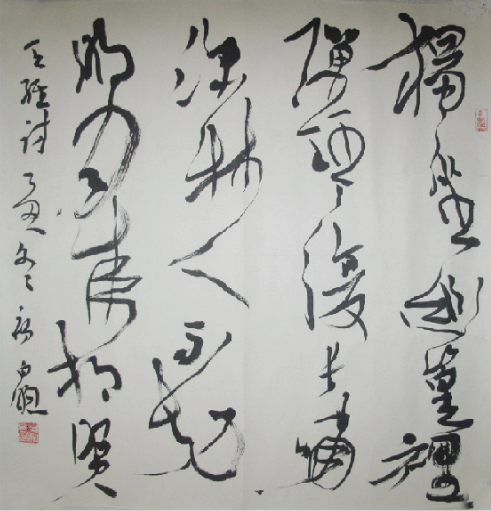 獨坐幽篁裡
彈琴復長嘯
深林人不知
明月來相照
王維詩 丁亥冬